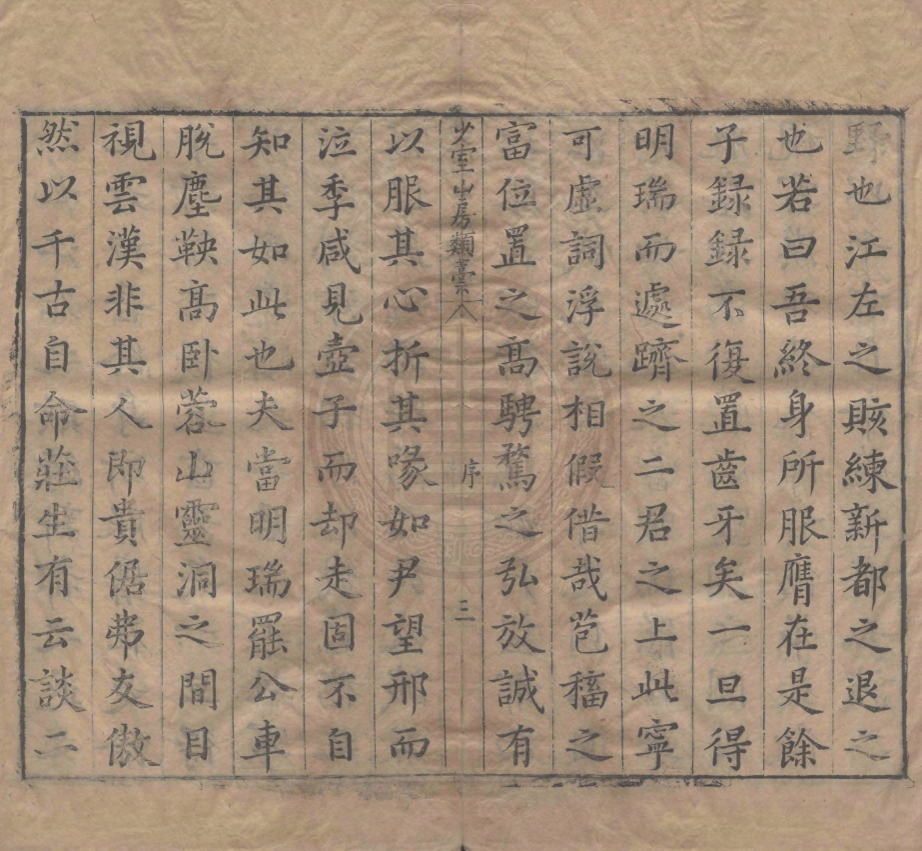 野也江左之賅練新都之退之
也若曰吾終身所服膺在是餘
子録録不復置齒牙矣一旦得
明瑞而處躋之二君之上此寧
可虛詞浮說相假借哉苞稸之
富位置之髙騁騖之弘放誠有
少室山房類藁 序 三
以服其心折其喙如尹望邢而
泣季咸見壺子而却走固不自
知其如此也夫當明瑞罷公車
脫塵鞅髙卧蓉山靈洞之間目
視雲漢非其人即貴倨弗友傲
然以千古自命莊生有云談二